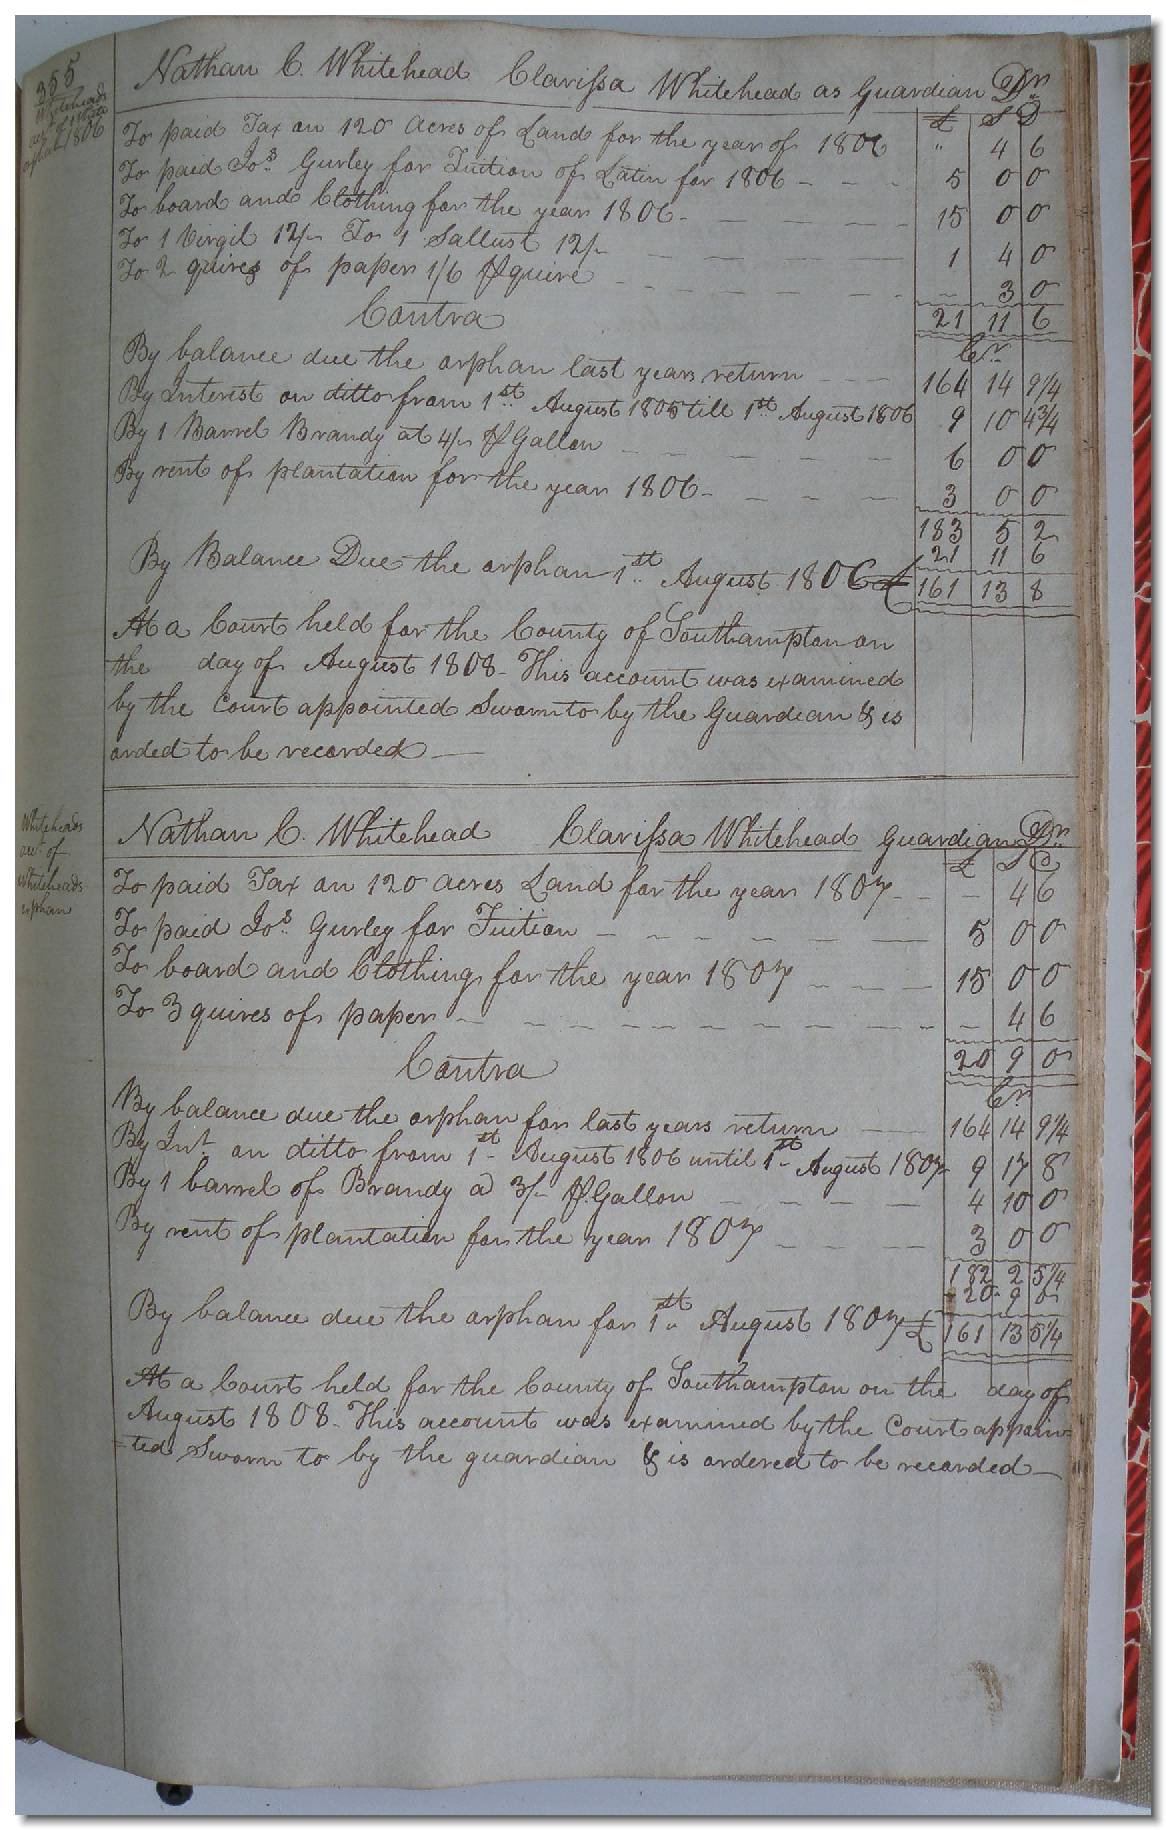 355
Whiteheads
orphan 1806
Nathan C. Whitehead Clarissa Whitehead as Guardian Dr
£ S D
To paid Tax on 120 Acres of Land for the year of 1806 " 4 6
To paid Jos. Gurley for Tuition of Latin for 1806 - - - 5 0 0
To board and Clothing for the year 1806 - — — — 15 0 0
To 1 Virgil 12/- To 1 Sallust 12/- — — — — 1 4 0
To 2 quires of paper 1/6 ⅌ quire - - — — — — 3 0
21 11 6
Contra Cr
By balance due the orphan last years return - - — 164 14 9 1/4
By Interest on ditto from 1st August 1805 till 1st August 1806 9 10 4 3/4
By 1 Barrel Brandy at 4/- ⅌ Gallon — — — — — 6 0 0
By rent of plantation for the year 1806 - — — — 3 0 0
183 5 2
21 11 6
By Balance Due the orphan 1st August 1806 £ 161 13 8
At a Court held for the County of Southampton on
the day of August 1808 - This account was examined
by the Court appointed Sworn to by the Guardian & is
orded to be recorded —
Whiteheads
acct of
Whiteheads
orphan
Nathan C. Whitehead Clarissa Whitehead Guardian Dr
£ S D
To paid Tax on 120 acres Land for the year 1807 - - - 4 6
To paid Jos. Gurley for Tuition — - - - — — 5 0 0
To board and Clothing for the year 1807 - - — — 15 0 0
To 3 quires of paper - - — — — — — — - - 4 6
20 9 0
Contra Cr
By balance due the orphan for last years return — 164 14 9 1/4
By Int on ditto from 1st August 1806 until 1st August 1807 9 17 8
By 1 barrel of Brandy a 3/- ⅌ Gallon — - - — 4 10 0
By rent of plantation for the year 1807 - — — 3 0 0
182 2 5 1/4
20 9 0
By balance due the orphan for 1st August 1807 £ 161 13 5 1/4
At a Court held for the County of Southampton on the day of
August 1808 - This account was examined by the Court appoin=
=ted Sworn to by the guardian & is ordered to be recorded —